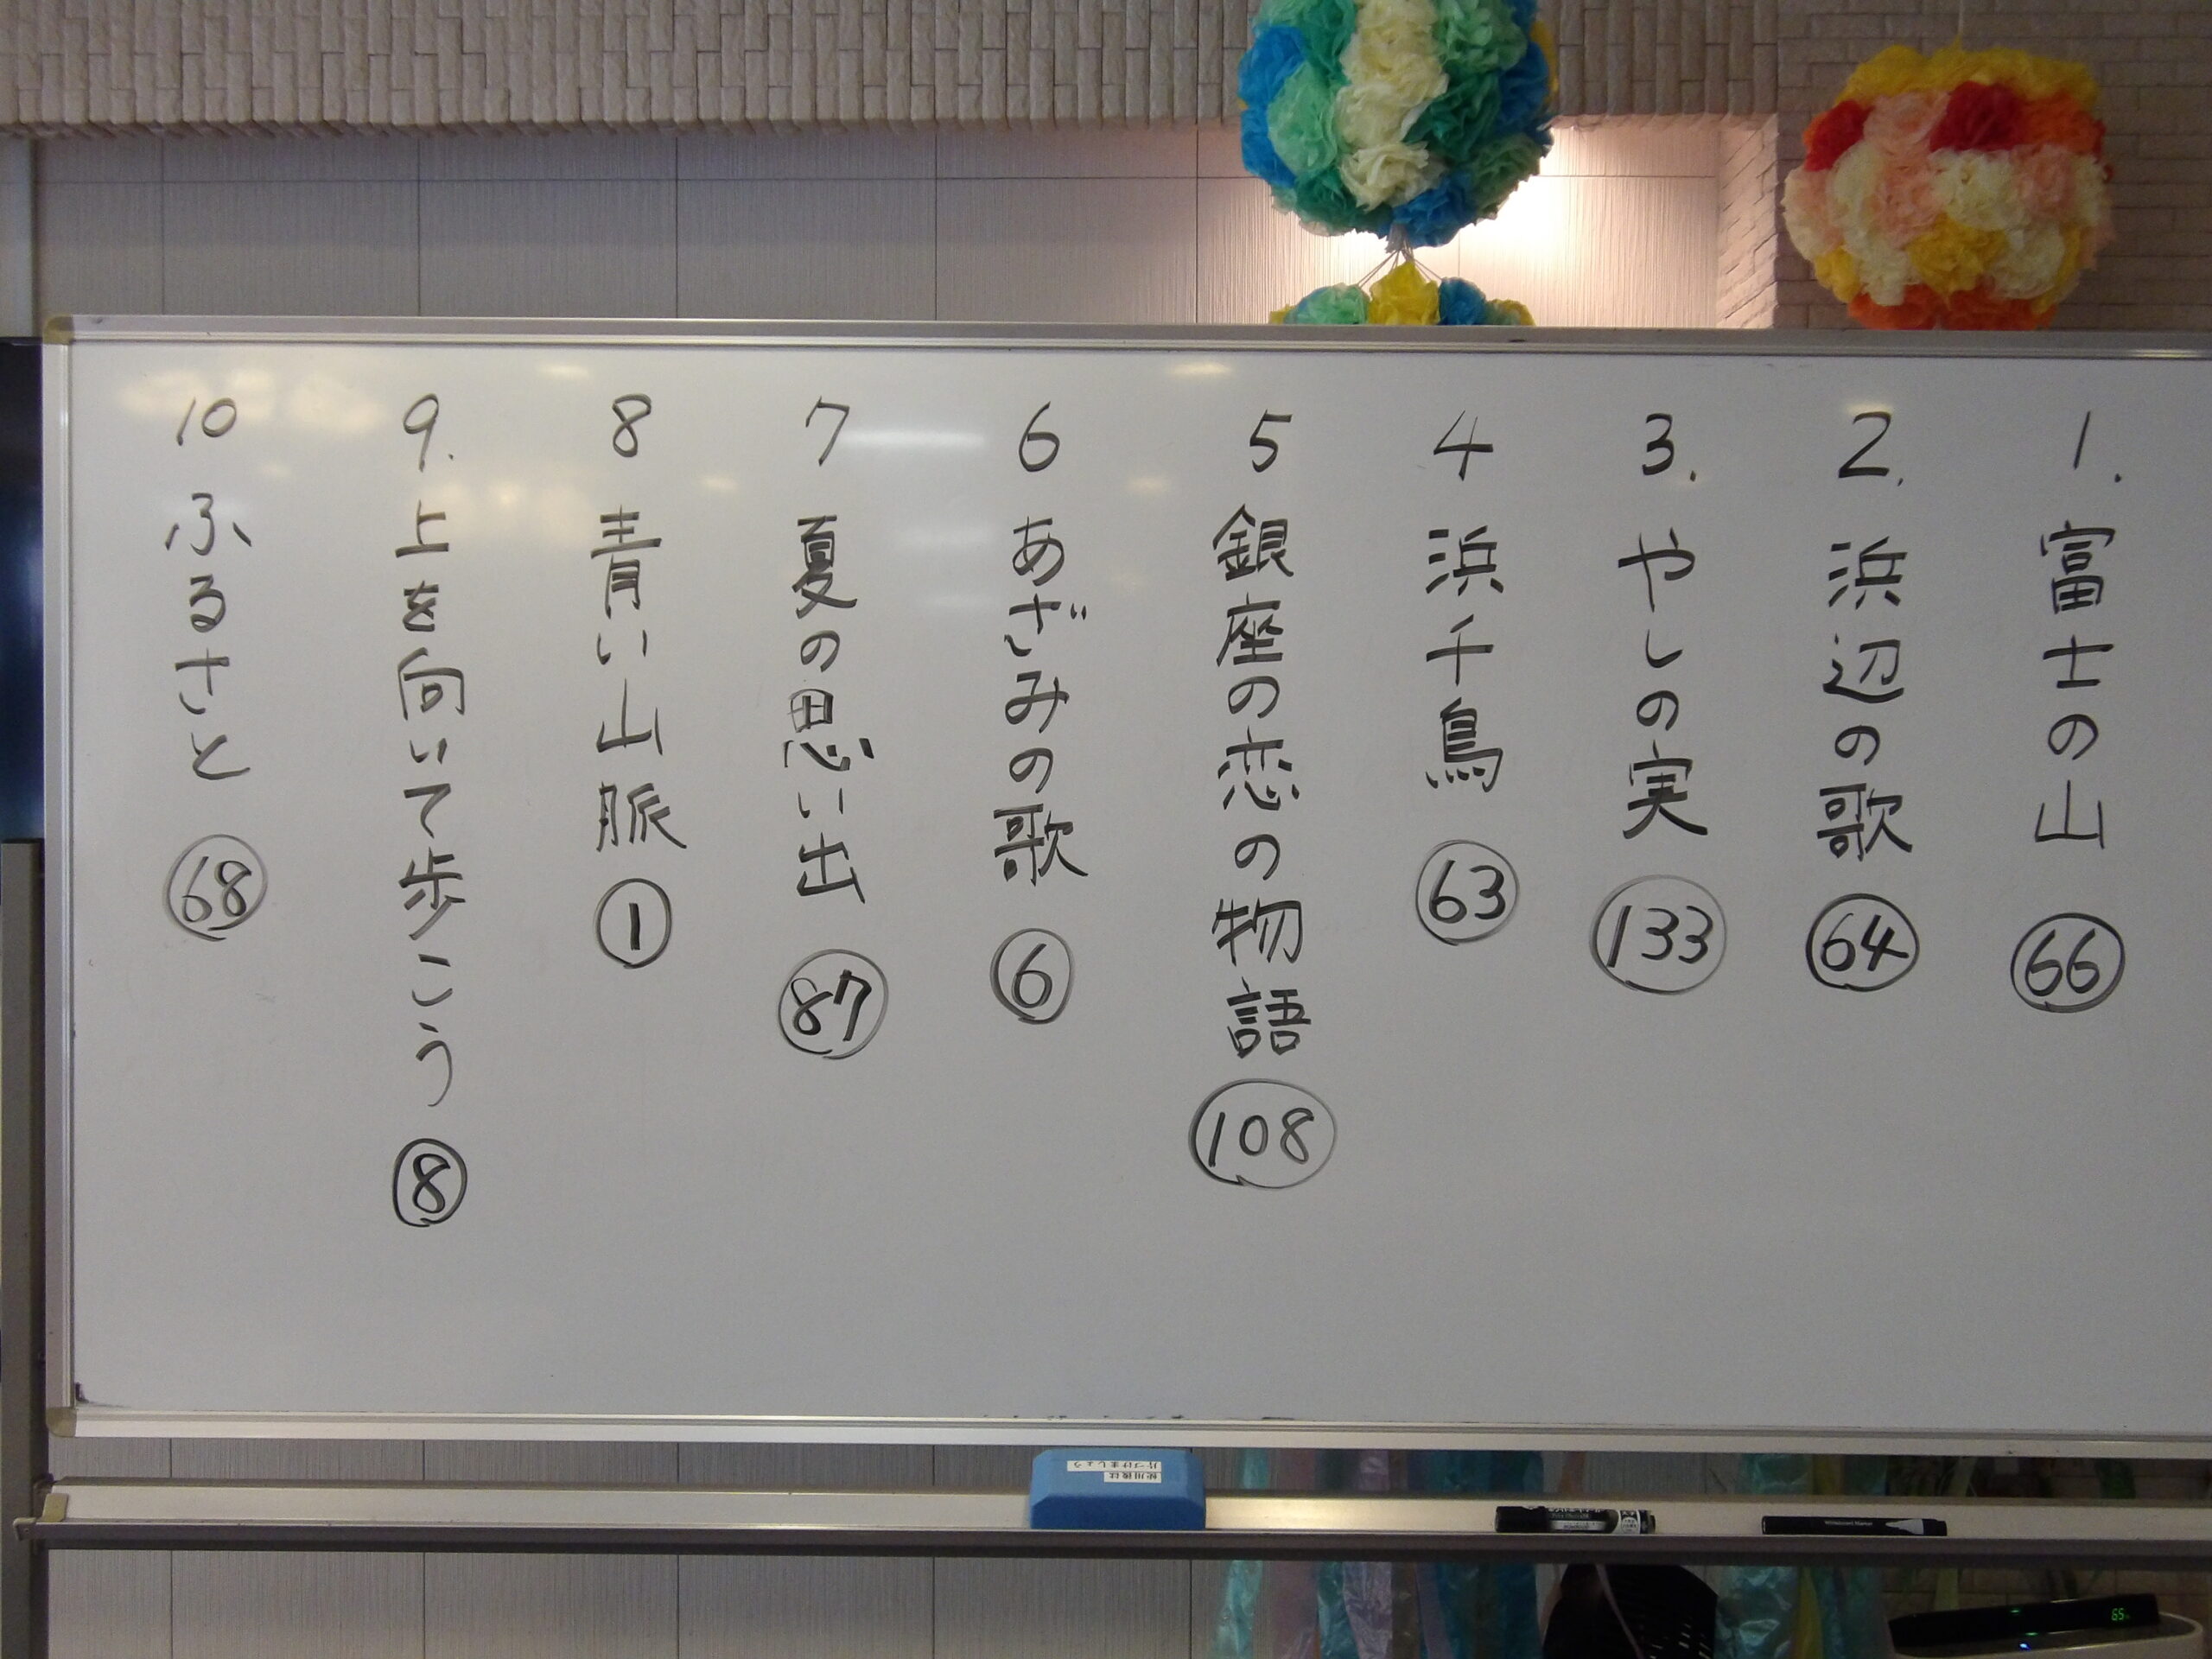 1. 富士の山 66
2. 浜辺の歌 64
3. やしの実 133
4 浜千鳥 63
5 銀座の恋の物語 108
6 あざみの歌 6
7 夏の思い出 87
8 青い山脈 1
9. 上を向いて歩こう 8
10 ふるさと 68
使用後は
片づけましょう
Whiteboard Marker